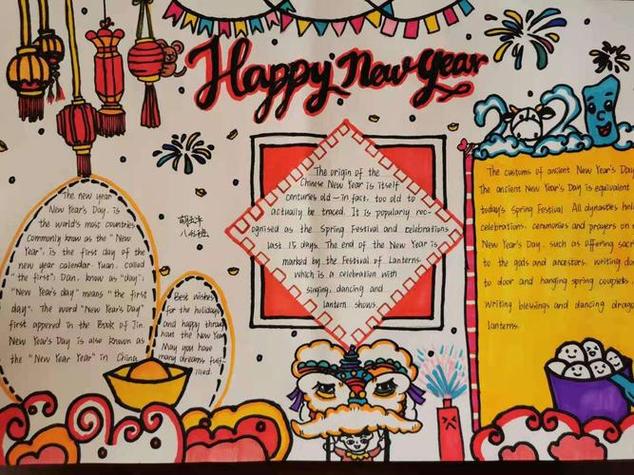 Happy New Year
2021
The new year
New Year's Day, is
the world's most countries
commonly know as the "New
Year", is the first day of the
new year calendar Yuan, called
"the first"; Dan, know as "day";
"New Year's day" means "the first
day". The word "New Year's Day"
first appered in the Book of Jin.
New Year's Day is also known as
the "New Year Year" in China,
Best wishes
for the holidays
and happy throu
hout the New Year
May you have
many dreams fulf-
illed.
The origin of the
Chinese New Year is itself
centuries old - in fact, too old to
actually be traced. It is popularly rec-
ognised as the Spring Festival and celebrations
last 15 days. The end of the New Year is
marked by the Festival of Lanterns,
which is a celebration with
singing, dancing and
lantern shows.
The customs of ancient New Year's Day
The ancient New Year's Day is equivalent
today's Spring Festival. All dynasties hel
celebrations, ceremonies and prayers on
New Year's Day, such as offering sacr
to the gods and ancestors, writing do
to door and hanging spring couplets
writing blessings and dancing drago
lanterns.